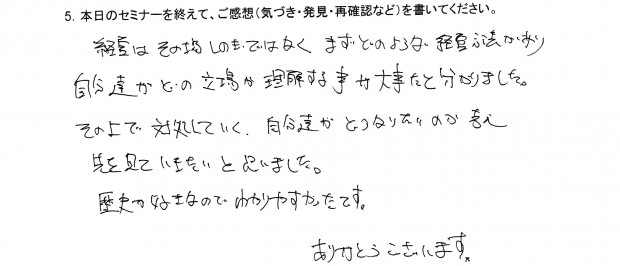 5. 本日のセミナーを終えて、ご感想（気づき・発見・再確認など）を書いてください。
経営はその場しのぎではなく まずどのような 経営方法があり
自分達がどの立場か理解する事が大事だと分かりました。
その上で 対処していく、自分達が どうなりたいのか 考え
先を見ていきたいと思いました。
歴史が好きなので わかりやすかったです。
ありがとうございます。